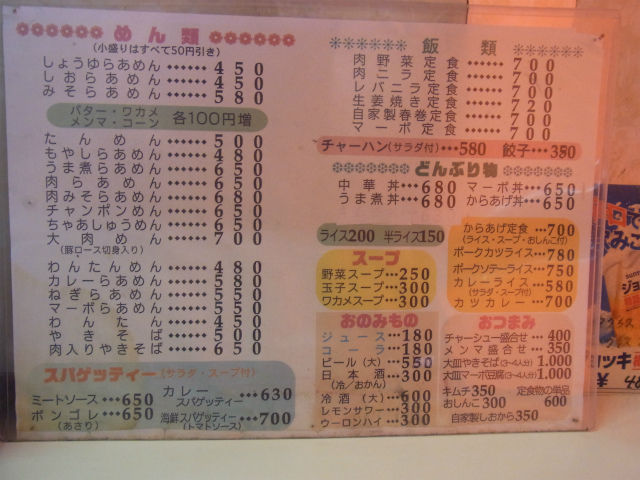 めん類
(小盛りはすべて50円引き)
しょうゆらあめん……450
しおらあめん……450
みそらあめん……580
バター・ワカメ
メンマ・コーン 各100円増
たんめん……500
もやしらあめん……480
うま煮らあめん……650
肉らあめん……650
肉みそらあめん……680
チャンポンめん……650
ちゃあしゅうめん……650
大肉めん……700
(豚ロース切身入り)
わんたんめん……480
カレーらあめん……580
ねぎらあめん……550
マーボらあめん……550
わんたん……450
やきそば……500
肉入りやきそば……650
スパゲッティー(サラダ・スープ付)
ミートソース…650
ボンゴレ…650
(あさり)
カレー
スパゲッティー…630
海鮮スパゲッティー…700
(トマトソース)
飯類
肉野菜定食……700
肉ニラ定食……700
レバニラ定食……700
生姜焼き定食……720
自家製春巻定食……700
マーボ定食……700
チャーハン(サラダ付)…580 餃子…350
どんぶり物
中華丼…680 マーボ丼…650
うま煮丼…680 からあげ丼…650
ライス200 半ライス150
スープ
野菜スープ…250
玉子スープ…300
ワカメスープ…300
からあげ定食…700
(ライス・スープ・おしんこ付)
ポークカツライス…780
ポークソテーライス…750
カレーライス…580
(サラダ・スープ付)
カツカレー…700
おのみもの
ジュース…180
コーラ…180
ビール(大)…550
日本酒…300
(冷/おかん)
冷酒(大)…600
レモンサワー…300
ウーロンハイ…300
おつまみ
チャーシュー盛合せ…400
メンマ盛合せ…350
大皿やきそば(3~4人分)1.000
大皿マーボ豆腐(3~4人分)1.000
キムチ350 定食物の単品
おしんこ300 600
自家製しおから350